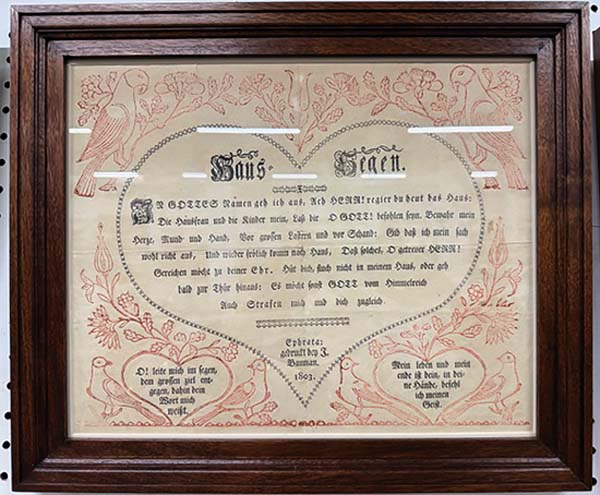 Haus- Segen.
IN GOTTES Namen geh ich aus, Ach HERR! regier du heut das Haus:
Die Hausfrau und die Kinder mein, Laß dir O GOTT! befohlen seyn. Bewahr mein
Herze, Mund und Hand, Vor grossen Lastern und vor Schand: Gib daß ich mein sach
wohl richt aus, Und wieder frölich komm nach Haus, Daß solches, O getreuer HERR!
Gereichen möcht zu deiner Ehr. Hüt dich, fluch nicht in meinem Haus, oder geh
bald zur Thür hinaus: Es möcht sonst GOTT vom Himmelreich
Auch Strafen mich und dich zugleich.
Ephrata:
gedruckt bey J.
Bauman.
1803.
O! leite mich im segen,
dem grossen ziel ent-
gegen, dahin dein
Wort mich
weißt.
Mein leben und mein
ende ist dein, in dei-
ne Hände, befehl
ich meinen
Geist.